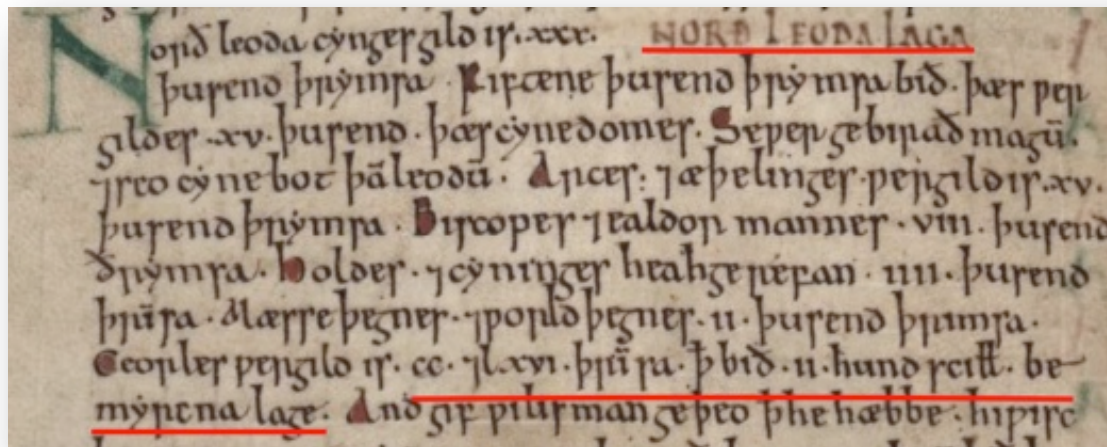 Norð leoda cynges gild is .xxx. NORÐ LEODA LAGA
þusend þrymsa . Fiftene þusend þrymsa bið . þæs ƿer
gildes .xv. þusend . þæs cynedomes. Se ƿer gebirað magū.
⁊ seo cynebot þā leodū. Arces: ⁊ æþelinges . ƿergild is .xv.
þusend þrymsa . Biscopes ⁊ ealdor mannes . viii. þusend
ðrymsa . holdes . ⁊ cyninges heahgerefan . iiii. þusend
þrīsa . Mæsse þegnes . ⁊ ƿorld þegnes . ii. þusend þrimsa .
Ceorles ƿergild is . cc. ⁊ l.xvi. þrīsa . ꝥ bið . ii. hund scill. be
myrcna lage. And gif ƿilisman geþeo ꝥ he hæbbe . hiƿisc